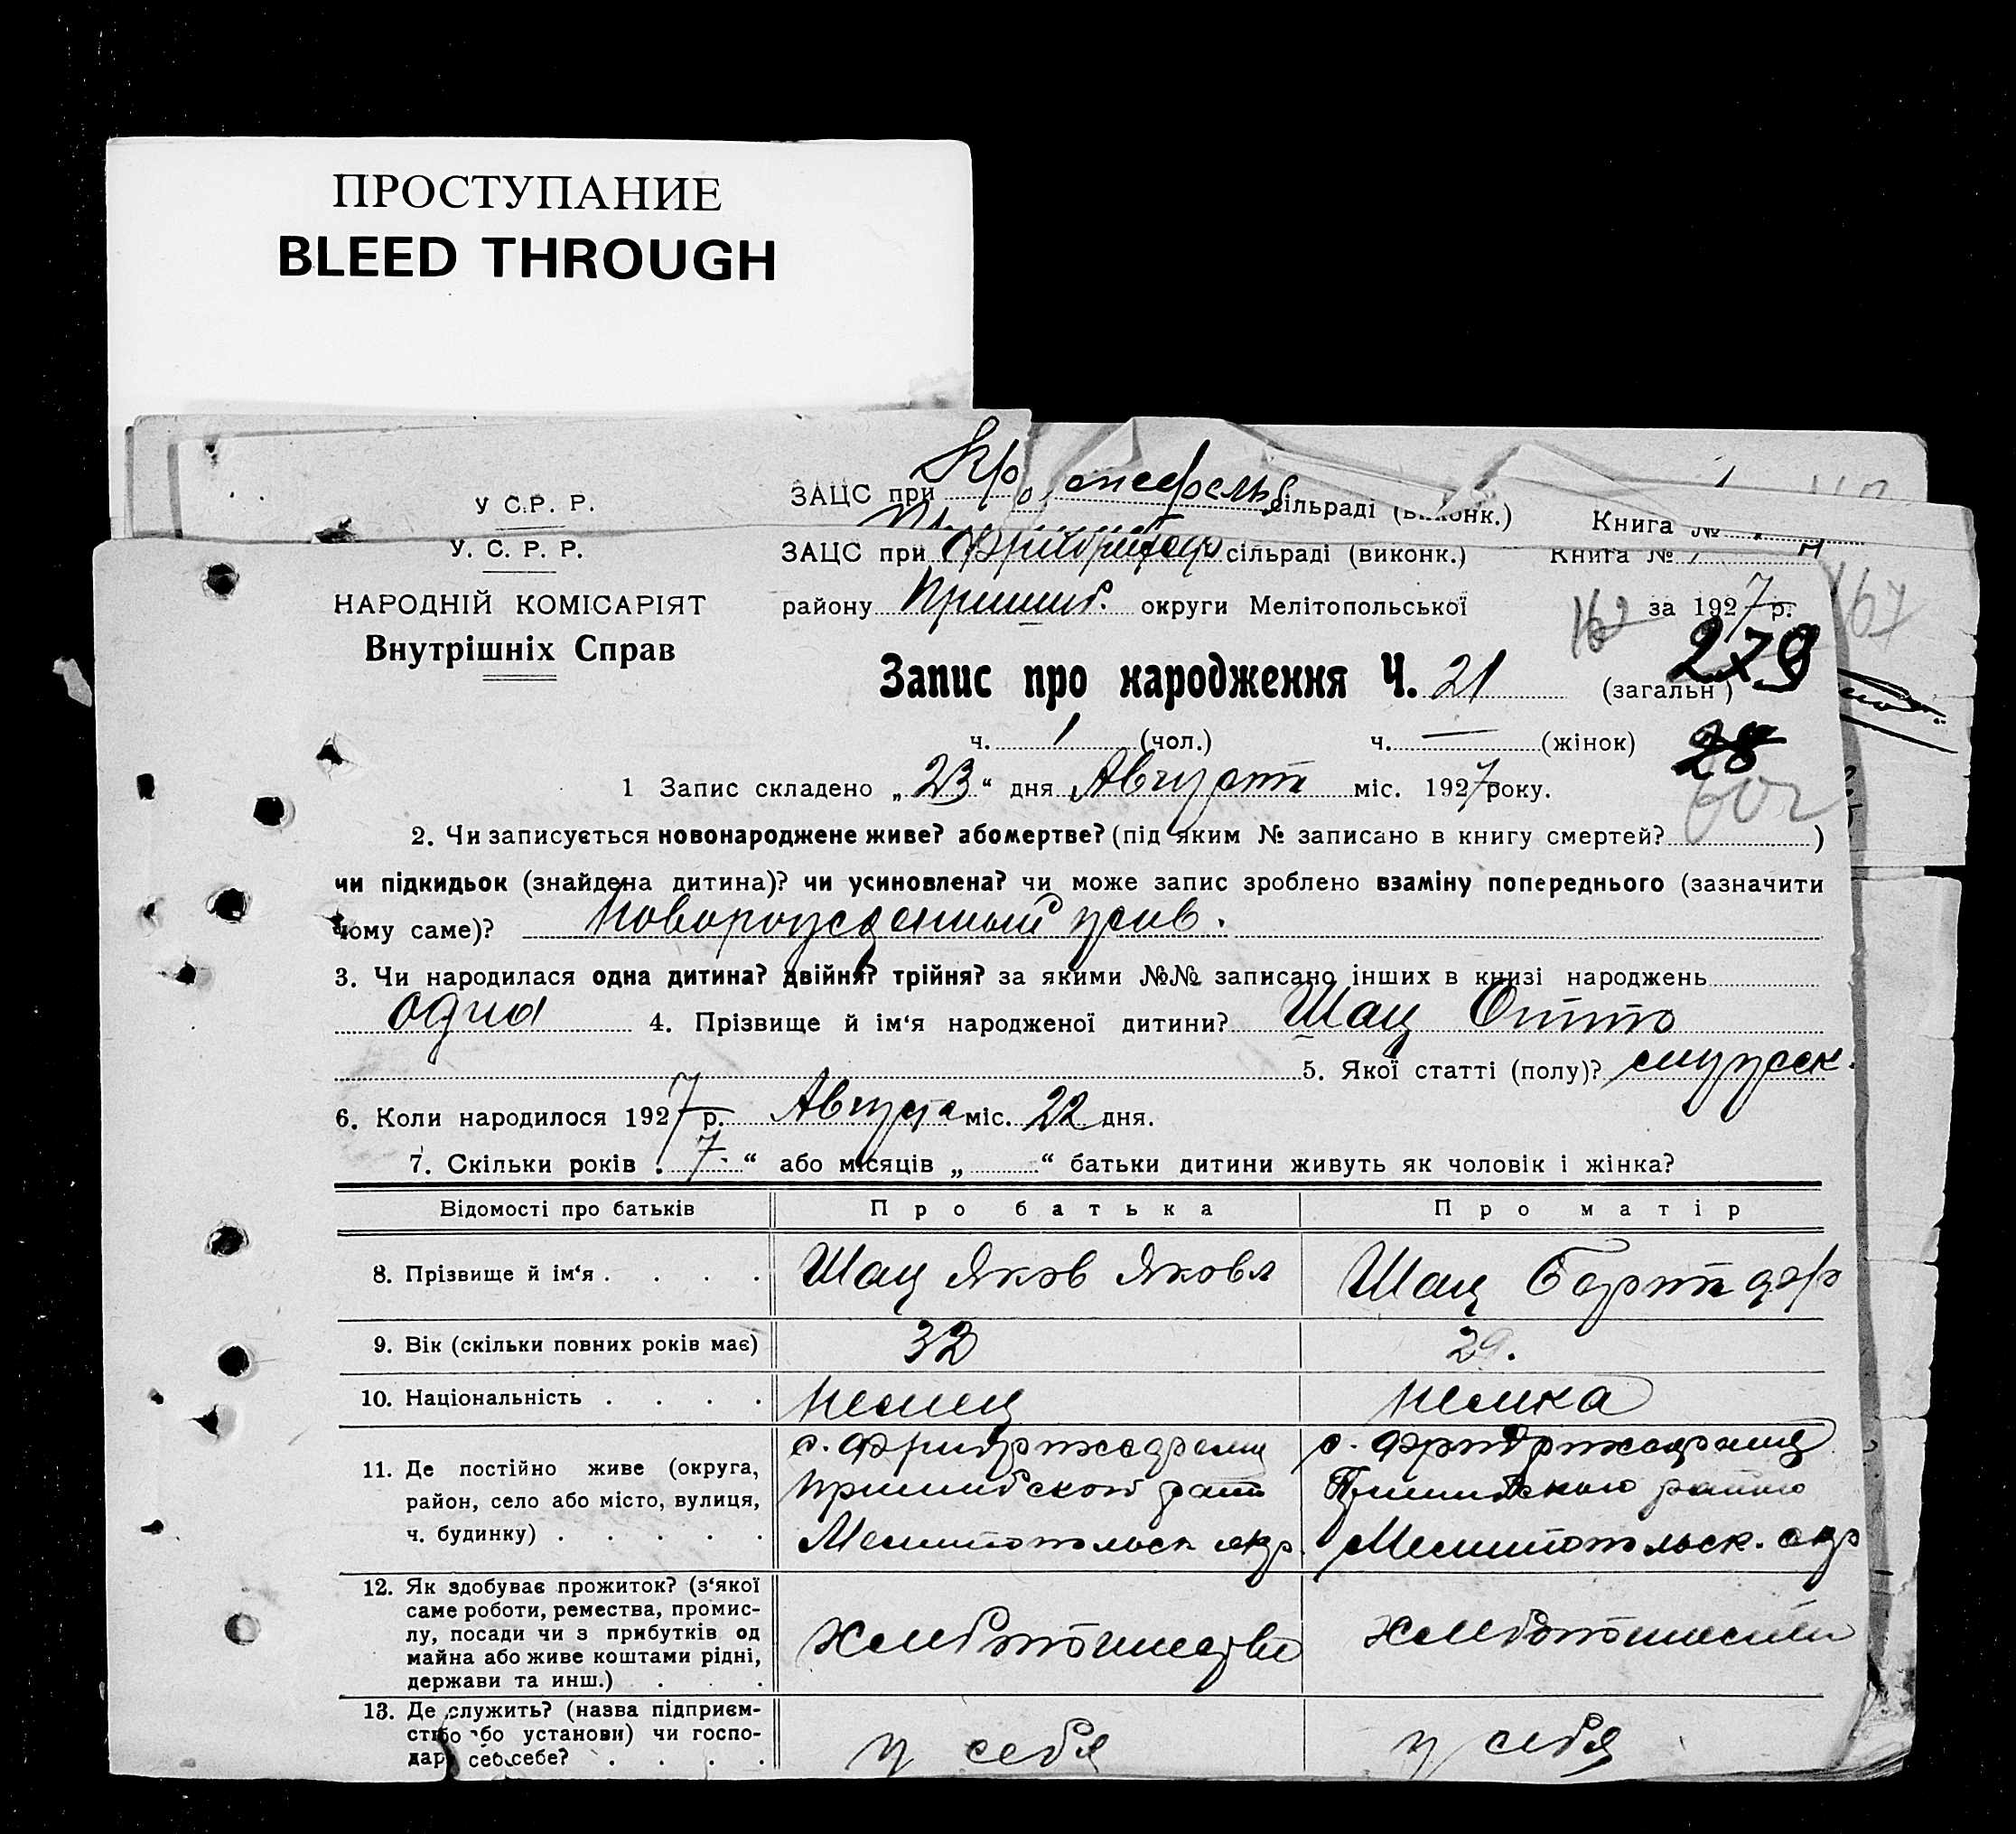 ПРОСТУПАНИЕ
BLEED THROUGH
У С.Р. Р. ЗАЦС при сільраді (виконк.) Книга №
У. С. Р. Р. ЗАЦС при сільраді (виконк.) Книга №
НАРОДНІЙ КОМІСАРІЯТ району Пришиб. округи Мелітопольської за 1927 р. 167
Внутрішніх Справ
279
Запис про народження Ч. 21 (загальн)
ч. 1 (чол.) ч. — (жінок) 28
1 Запис складено „23“ дня Август міс. 1927 року.
602
2. Чи записується новонароджене живе? або мертве? (під яким № записано в книгу смертей? )
чи підкидьок (знайдена дитина)? чи усиновлена? чи може запис зроблено взаміну попереднього (зазначити
чому саме)? Новорожденный жив.
3. Чи народилася одна дитина? двійня? трійня? за якими №№ записано інших в книзі народжень
одна 4. Прізвище й ім‘я народженої дитини? Шац Отто
5. Якої статті (полу)? мужск.
6. Коли народилося 1927 р. Августа міс. 22 дня.
7. Скільки років „ 7 “ або місяців „ “ батьки дитини живуть як чоловік і жінка?
Відомості про батьків Про батька Про матір
8. Прізвище й ім‘я . . . . Шац Яков Яковл Шац
9. Вік (скільки повних років має) 32 29.
10. Національність . . . . немец немка
11. Де постійно живе (округа,
район, село або місто, вулиця,
ч. будинку) . . . . .
с.
Пришибского
Мелитопольск окр.
с.
Пришибского района
Мелитопольск. окр
12. Як здобуває прожиток? (з‘якої
саме роботи, ремества, промис-
лу, посади чи з прибутків од
майна або живе коштами рідні,
держави та инш.) . .
13. Де служить? (назва підприєм-
ства або установи) чи госпо-
дар себе? . . . .
у себя у себя